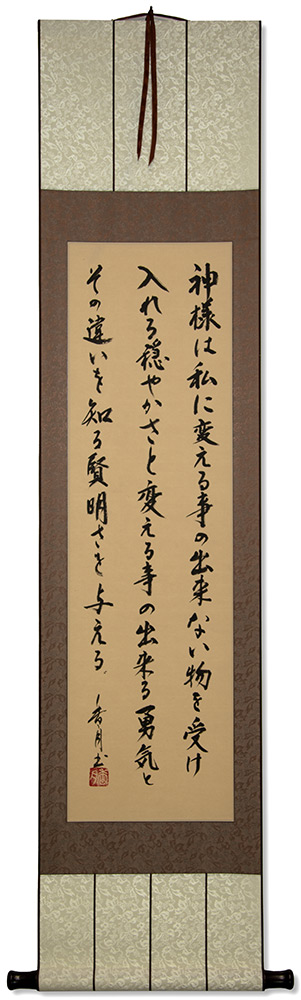 神様は私に変える事の出来ない物を受け
入れる穏やかさと変える事の出来る勇気と
その違いを知る賢明さを与える
香月書